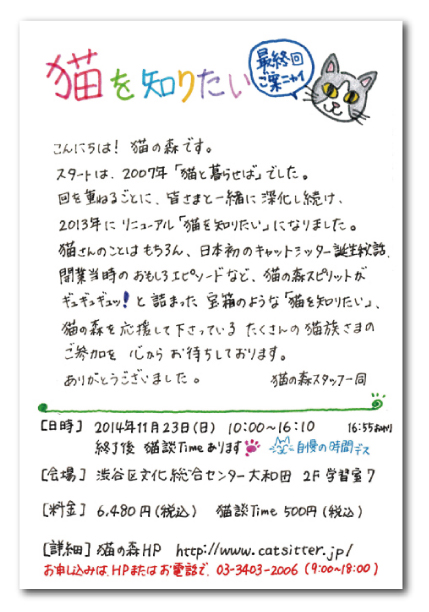 猫を知りたい
最終回
ご案ニャイ
こんにちは! 猫の森です。
スタートは、2007年「猫と暮らせば」でした。
回を重ねるごとに、皆さまと一緒に深化し続け、
2013年にリニューアル「猫を知りたい」になりました。
猫さんのことはもちろん、日本初のキャットシッター誕生秘話、
開業当時のおもしろエピソードなど、猫の森スピリットが
ギュギュギュッ!と詰まった宝箱のような「猫を知りたい」、
猫の森を応援して下さっているたくさんの猫族さまの
ご参加を心からお待ちしております。
ありがとうございました。 猫の森スタッフ一同
[日時] 2014年11月23日(日) 10:00~16:10 16:55おわり
終了後 猫談Timeあります 自慢の時間デス
[会場] 渋谷区文化総合センター大和田 2F 学習室7
[料金] 6,480円(税込) 猫談Time 500円(税込)
[詳細] 猫の森HP http://www.catsitter.jp/
お申し込みは、HPまたはお電話で、03-3403-2006 (9:00~18:00)